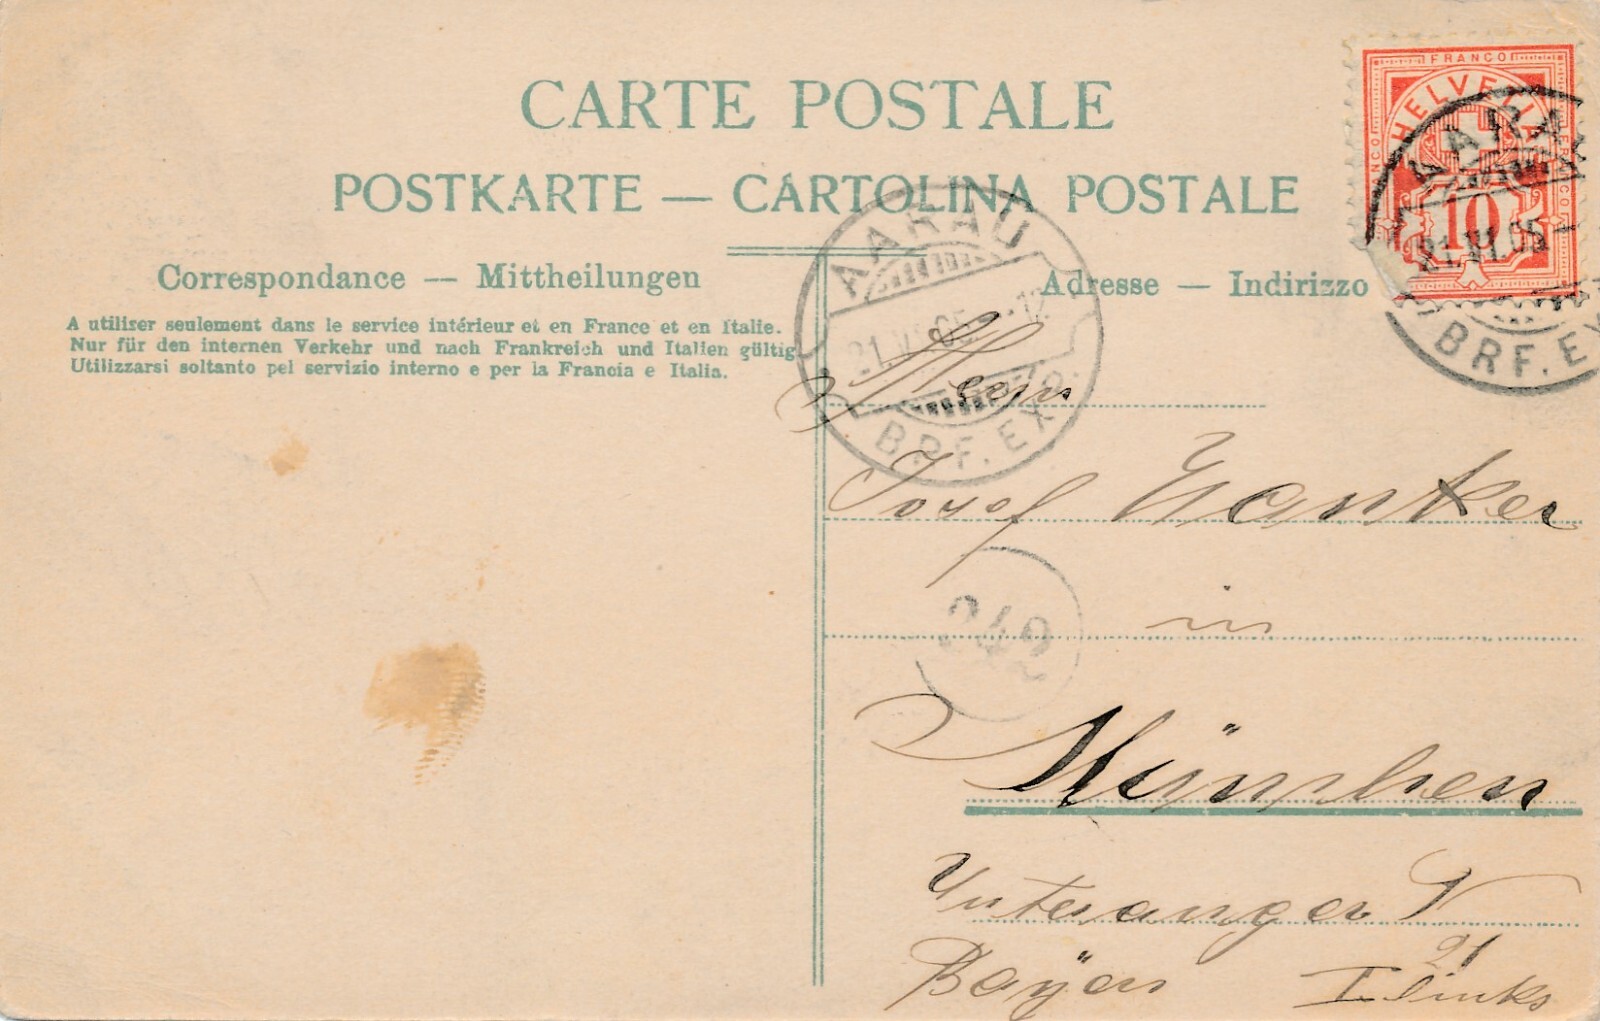 CARTE POSTALE
POSTKARTE — CARTOLINA POSTALE
Correspondance — Mittheilungen
Adresse — Indirizzo
A utiliser seulement dans le service intérieur et en France et en Italie.
Nur für den internen Verkehr und nach Frankreich und Italien gültig
Utilizzarsi soltanto pel servizio interno e per la Francia e Italia.
FRANCO
HELVETIA
10
AARAU
21.VI.05
BRF. EX
AARAU
21.VI.05
BRF. EXP.
Herrn
Josef
in
242
München
Unteranger
21
Bayern I links